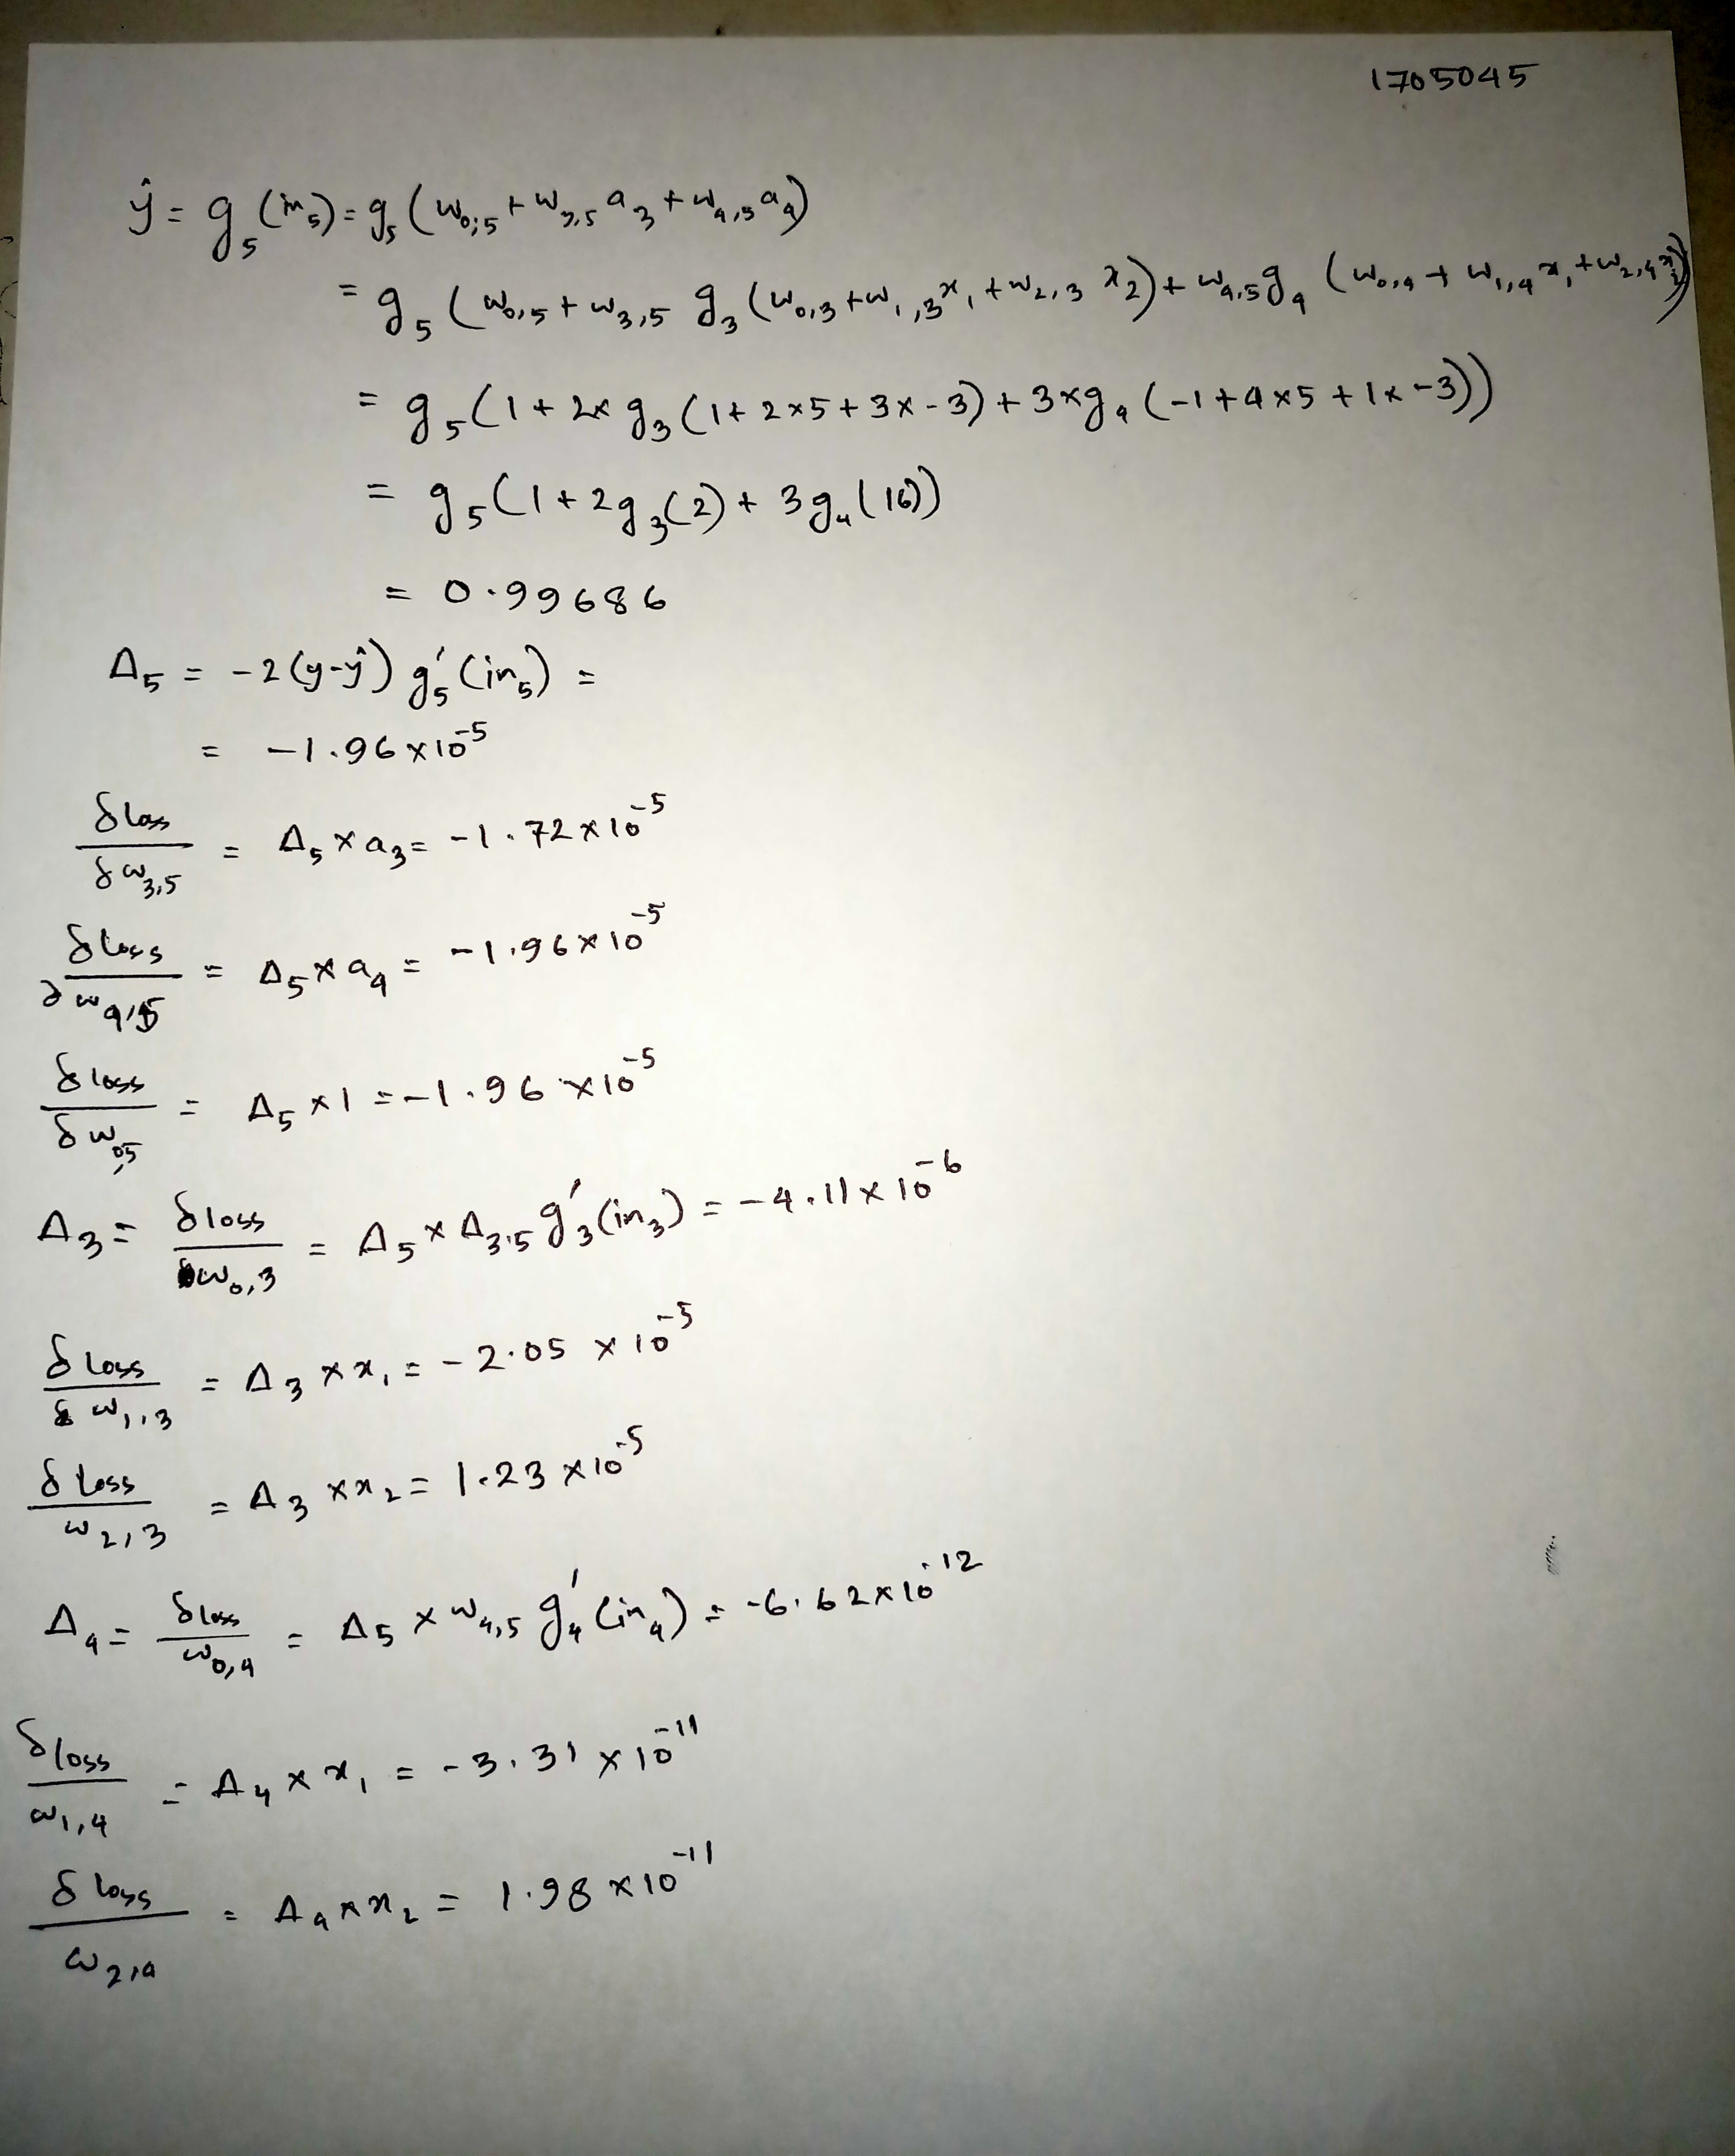 1705045
ŷ = g₅(in₅) = g₅(w₀,₅ + w₃,₅ a₃ + w₄,₅ a₄)
= g₅(w₀,₅ + w₃,₅ g₃(w₀,₃ + w₁,₃x₁ + w₂,₃ x₂) + w₄,₅g₄(w₀,₄ + w₁,₄x₁ + w₂,₄x₂))
= g₅(1 + 2× g₃(1 + 2×5 + 3×-3) + 3×g₄(-1 + 4×5 + 1×-3))
= g₅(1 + 2g₃(2) + 3g₄(16))
= 0.99686
Δ₅ = -2(y-ŷ) g₅′(in₅) =
= -1.96×10⁻⁵
δloss/δw₃,₅ = Δ₅ × a₃ = -1.72×10⁻⁵
δloss/∂w₄,₅ = Δ₅ × a₄ = -1.96×10⁻⁵
δloss/δw₀,₅ = Δ₅ × 1 = -1.96×10⁻⁵
Δ₃ = δloss/δw₀,₃ = Δ₅ × Δ₃,₅ g₃′(in₃) = -4.11×10⁻⁶
δloss/δw₁,₃ = Δ₃ × x₁ = -2.05 × 10⁻⁵
δloss/w₂,₃ = Δ₃ × x₂ = 1.23×10⁻⁵
Δ₄ = δloss/w₀,₄ = Δ₅ × w₄,₅ g₄′(in₄) = -6.62×10⁻¹²
δloss/w₁,₄ = Δ₄ × x₁ = -3.31 × 10⁻¹¹
δloss/w₂,₄ = Δ₄ × x₂ = 1.98×10⁻¹¹